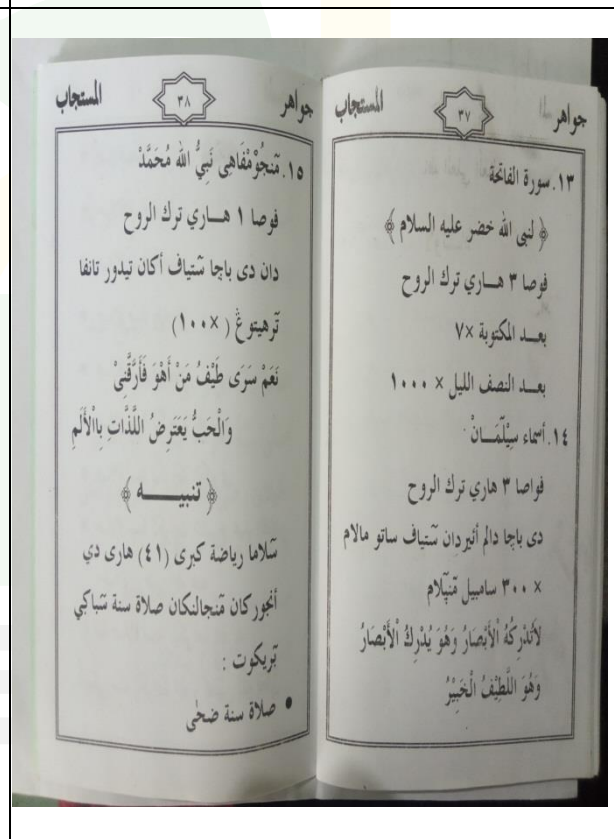 جواهر ٣٧ المستجاب
١٣. سورة الفاتحة
﴿ لنبى الله خضر عليه السلام ﴾
فوصا ٣ هــاري ترك الروح
بعــد المكتوبة ×٧
بعــد النصف الليل × ١٠٠٠
١٤. أسماء سِيْلُمَــانْ
فواصا ٣ هاري ترك الروح
دى باچا دالم أئير دان ستياف ساتو مالام
× ٣٠٠ سامبيل مّنيّلام
لَاتُدْرِكُهُ الْأَبْصَارُ وَهُوَ يُدْرِكُ الْأَبْصَارُ
وَهُوَ اللَّطِيْفُ الْخَبِيْرُ
جواهر ٣٨ المستجاب
١٥. مّنجُوْمْفَاهِى نَبِيُّ الله مُحَمَّدْ
فوصا ١ هــاري ترك الروح
دان دى باچا سّتياف أكان تيدور تانفا
تّرهيتوغْ ( ×١٠٠)
نَعَمْ سَرَى طَيْفُ مَنْ أَهْوَ فَأَرَّقَنِىْ
وَالْحَبُّ يَعَتَرِضُ اللَّذَّاتِ بِااْلأَلَمِ
﴿ تنبيــــه ﴾
سّلاما رياضة كبرى (٤١) هارى دي
أنجوركان مّنجالنكان صلاة سنة سّباكي
بّريكوت :
• صلاة سنة ضحٰى